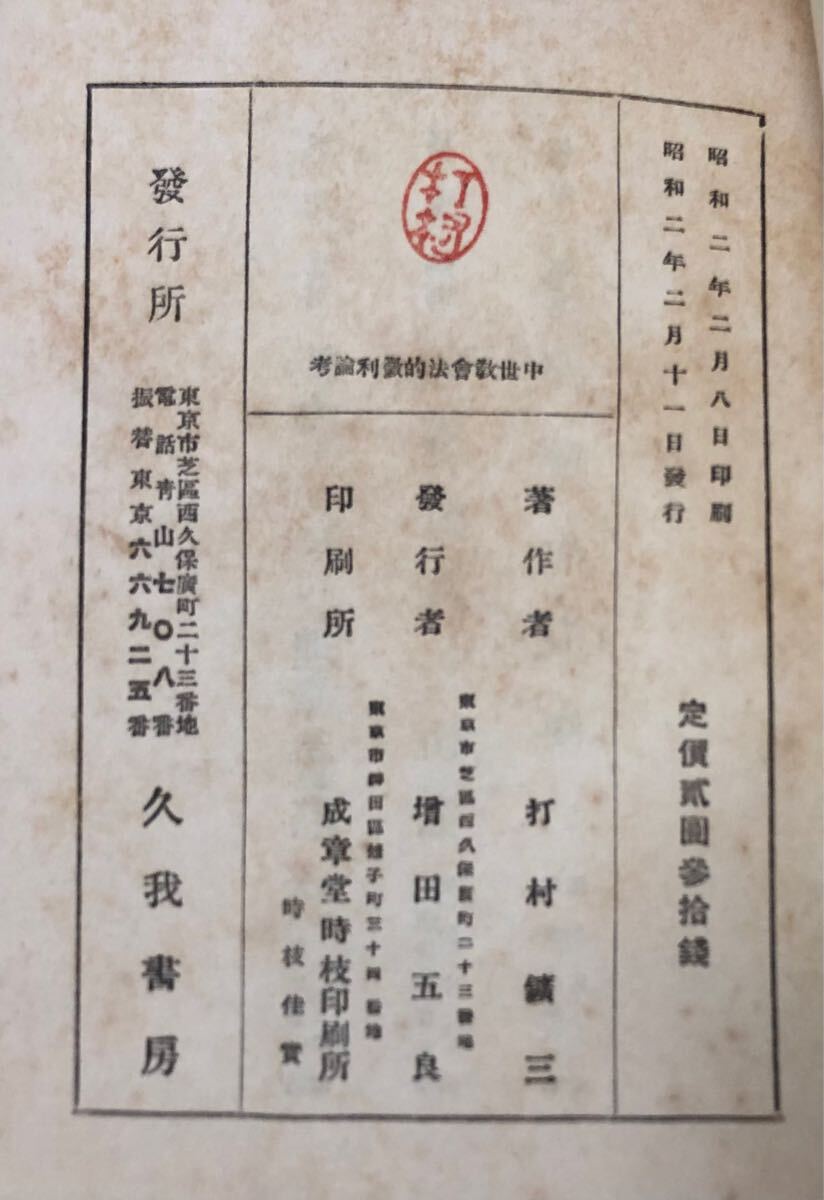 昭和二年二月八日印刷
昭和二年二月十一日發行
定價貳圓參拾錢
打村
中世敎會法的徵利論考
著作者 打村鑛三
東京市芝區西久保廣町二十三番地
發行者 增田五良
東京市神田區 子町三十四番地
印刷所 成章堂時枝印刷所
時枝佳實
發行所
東京市芝區西久保廣町二十三番地
電話靑山七〇八番
振替東京六六九二五番
久我書房